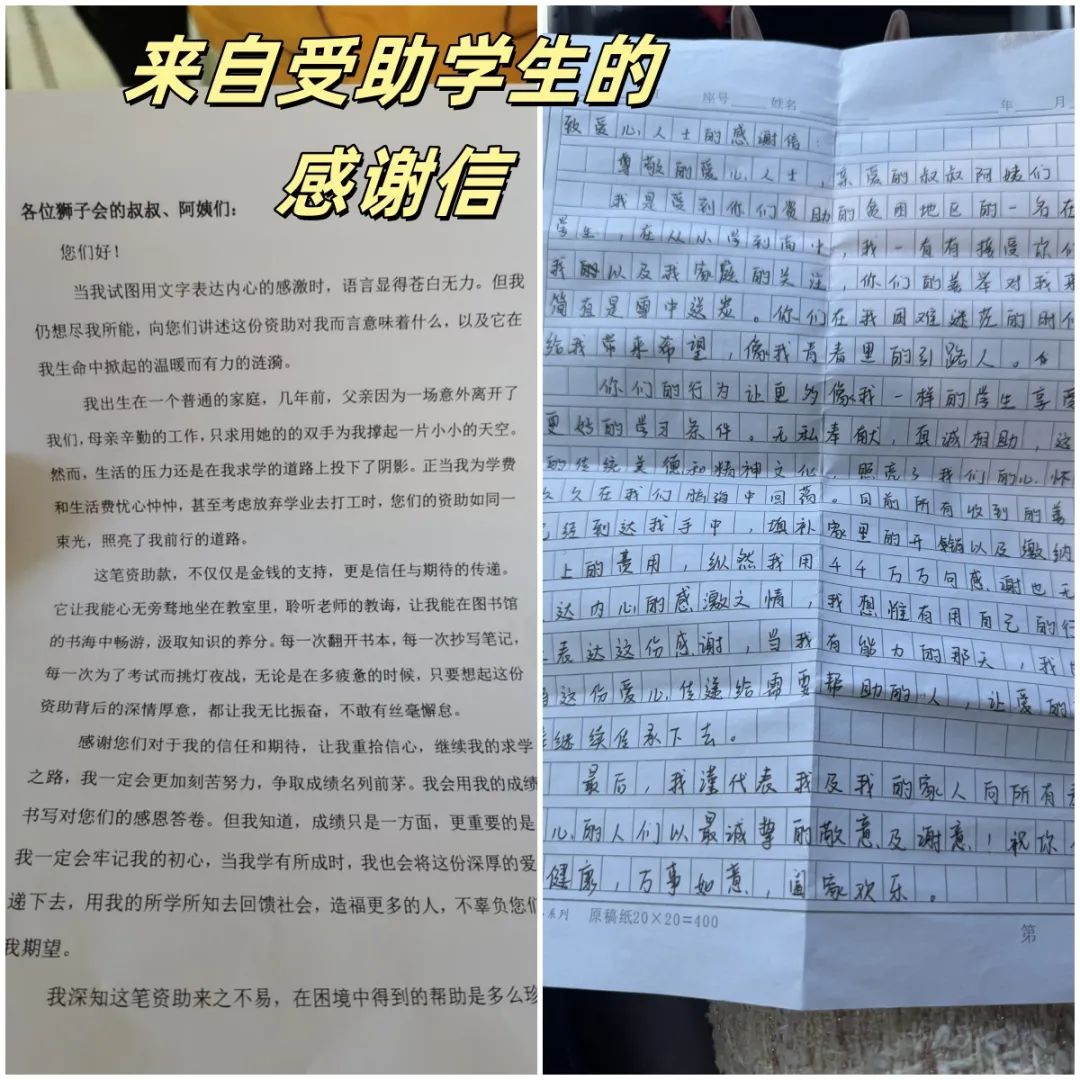 来自受助学生的
感谢信
各位狮子会的叔叔、阿姨们：
您们好！
当我试图用文字表达内心的感激时，语言显得苍白无力。但我
仍想尽我所能，向您们讲述这份资助对我而言意味着什么，以及它在
我生命中掀起的温暖而有力的涟漪。
我出生在一个普通的家庭，几年前，父亲因为一场意外离开了
我们，母亲辛勤的工作，只求用她的的双手为我撑起一片小小的天空。
然而，生活的压力还是在我求学的道路上投下了阴影。正当我为学费
和生活费忧心忡忡，甚至考虑放弃学业去打工时，您们的资助如同一
束光，照亮了我前行的道路。
这笔资助款，不仅仅是金钱的支持，更是信任与期待的传递。
它让我能心无旁骛地坐在教室里，聆听老师的教诲，让我能在图书馆
的书海中畅游，汲取知识的养分。每一次翻开书本，每一次抄写笔记，
每一次为了考试而挑灯夜战，无论是在多疲惫的时候，只要想起这份
资助背后的深情厚意，都让我无比振奋，不敢有丝毫懈怠。
感谢您们对于我的信任和期待，让我重拾信心，继续我的求学
之路，我一定会更加刻苦努力，争取成绩名列前茅。我会用我的成绩
书写对您们的感恩答卷。但我知道，成绩只是一方面，更重要的是
我一定会牢记我的初心，当我学有所成时，我也会将这份深厚的爱
递下去，用我的所学所知去回馈社会，造福更多的人，不辜负您们
我期望。
我深知这笔资助来之不易，在困境中得到的帮助是多么珍
座号 姓名 年 月
致爱心人士的感谢信：
尊敬的爱心人士，亲爱的叔叔阿姨们
我是受到你们资助的贫困地区的一名在
学生，在从小学到高中，我一直有接受你们
我以及我家庭的关注，你们的善举对我来
简直是雪中送炭。你们在我困难迷茫的时候
给我带来希望，像我青春里的引路人。
你们的行为让更多像我一样的学生享受
更好的学习条件。无私奉献，真诚相助，这
的传统美德和精神文化，照亮了我们的心怀
久久在我们脑海中回荡。目前所有收到的善
已经到达我手中，填补家里的开销以及缴纳
上的费用，纵然我用千千万万句感谢也无
达内心的感激之情，我想惟有用自己的行
表达这份感谢，当我有能力的那天，我也
这份爱心传递给需要帮助的人，让爱的
继续传承下去。
最后，我谨代表我及我的家人向所有
心的人们以最诚挚的敬意及谢意！祝你
健康，万事如意，阖家欢乐。
系列 原稿纸20×20=400
第